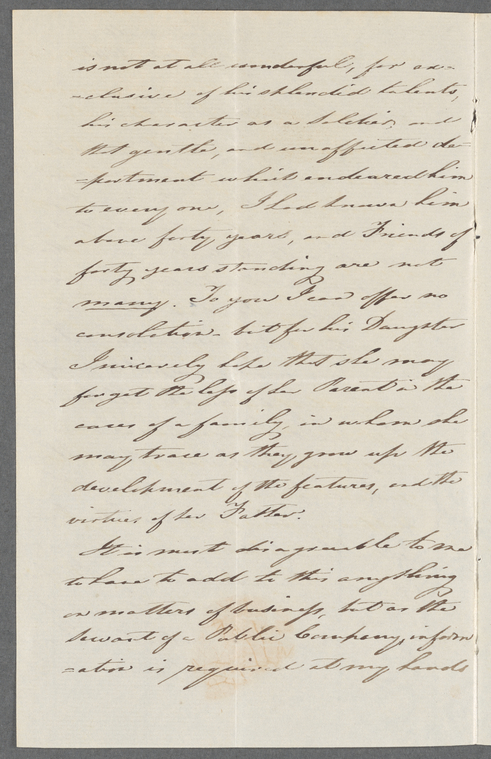 is not at all wonderful, for ex=
=clusive of his splendid talents,
his character as a Soldier, and
that gentle, and unaffected de=
=portment which endeared him
to every one, I had known him
above forty years, and Friends of
forty years standing are not
many. To you I can offer no
consolation - but for his Daughter
I sincerely hope that she may
forget the loss of her Parent in the
cares of a family, in whom she
may trace as they grow up the
development of the features, and the
virtues of her Father.
It is most disagreeable to me
to have to add to this anything
on matters of business, but as the
Servant of a Public Company, inform
=ation is required at my hands